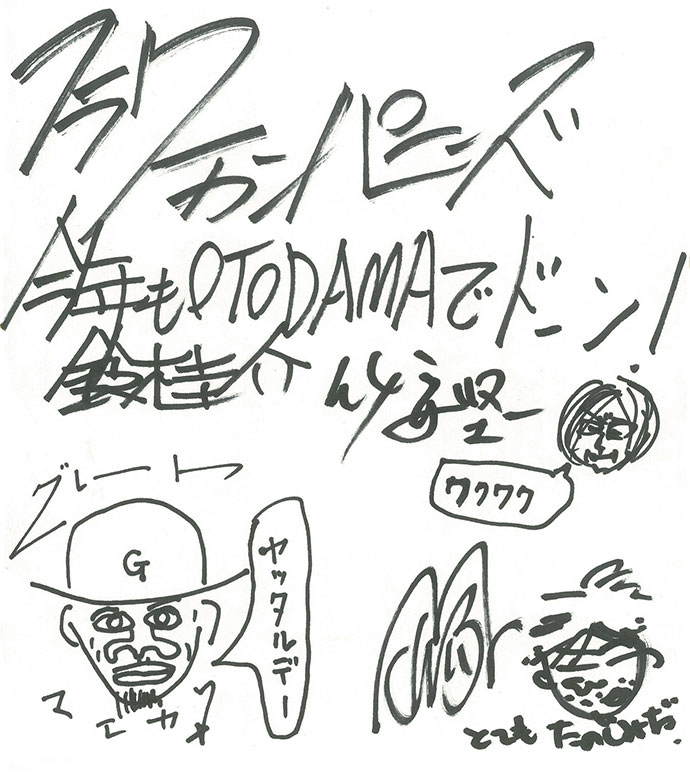 フラワー
カンパニーズ
今年もOTODAMAでドーン!
鈴木圭介 竹安堅一
ワクワク
グレート
G
ヤッタルデー
マエカワ
とても たのしみだ